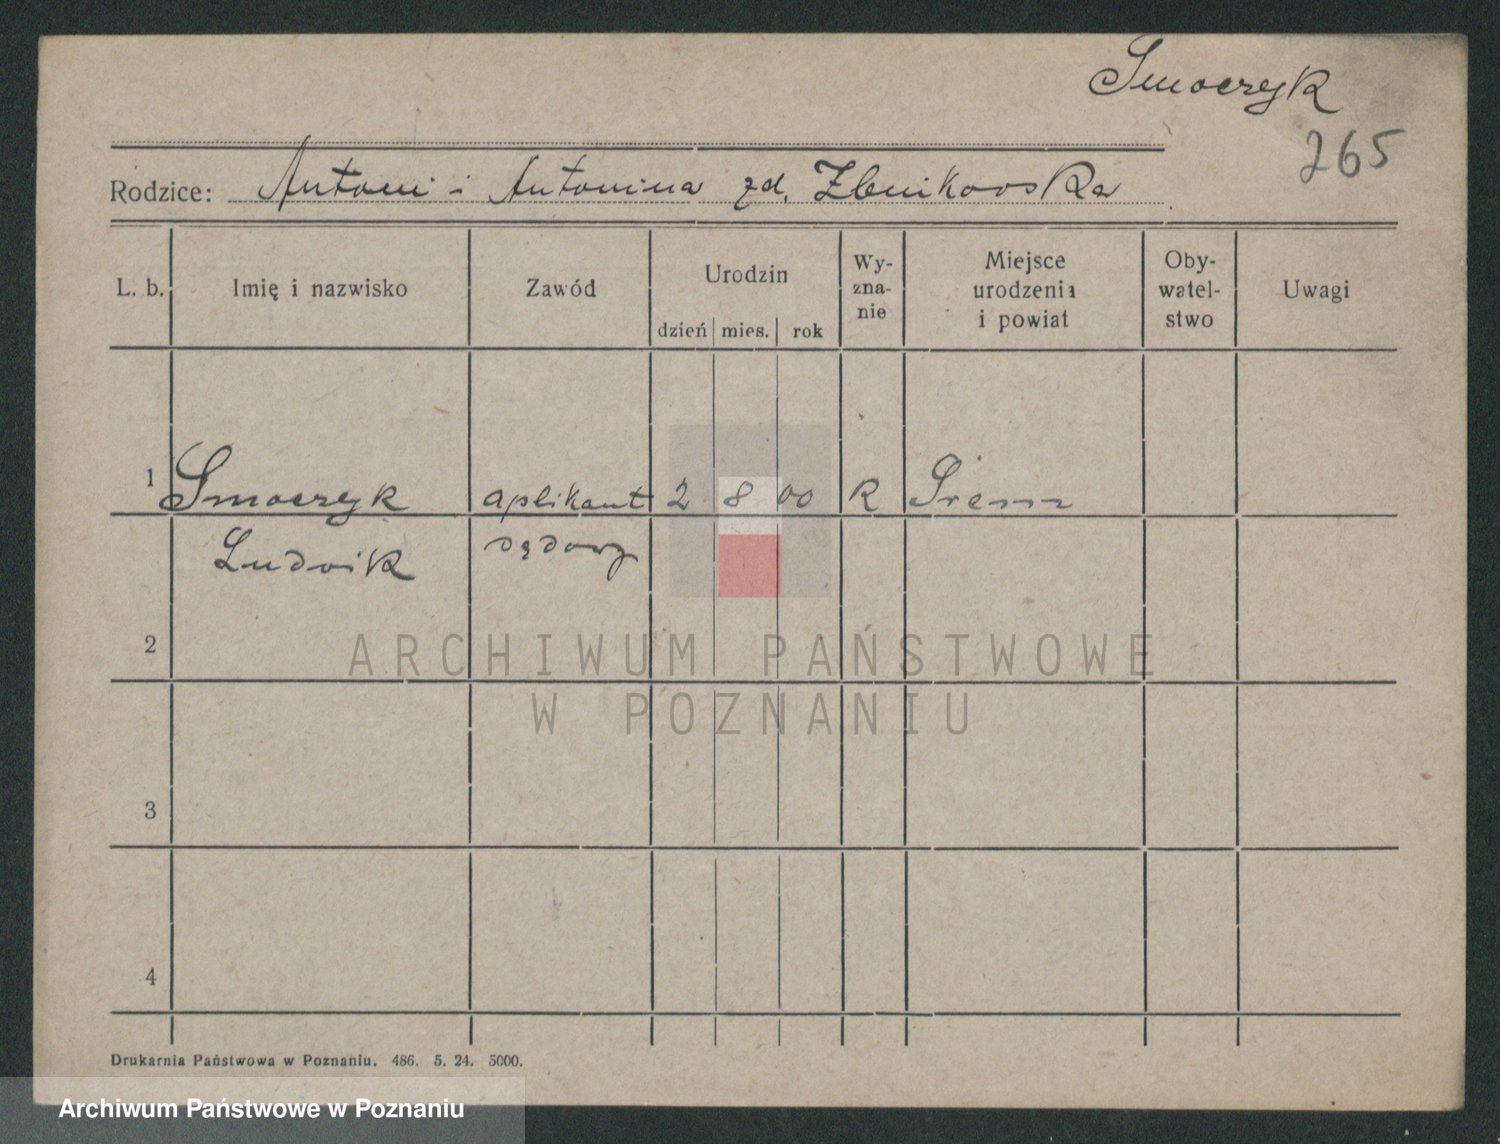 Smoczyk
265
Rodzice: Antoni i Antonina zd. Zbnikowska
L. b. Imię i nazwisko Zawód Urodzin dzień mies. rok Wy-zna-nie Miejsce urodzenia i powiat Oby-watel-stwo Uwagi
1 Smoczyk aplikant 2 8 00 R Śrem
Ludwik sądowy
2
ARCHIWUM PAŃSTWOWE
W POZNANIU
3
4
Drukarnia Państwowa w Poznaniu. 486. 5. 24. 5000.
Archiwum Państwowe w Poznaniu